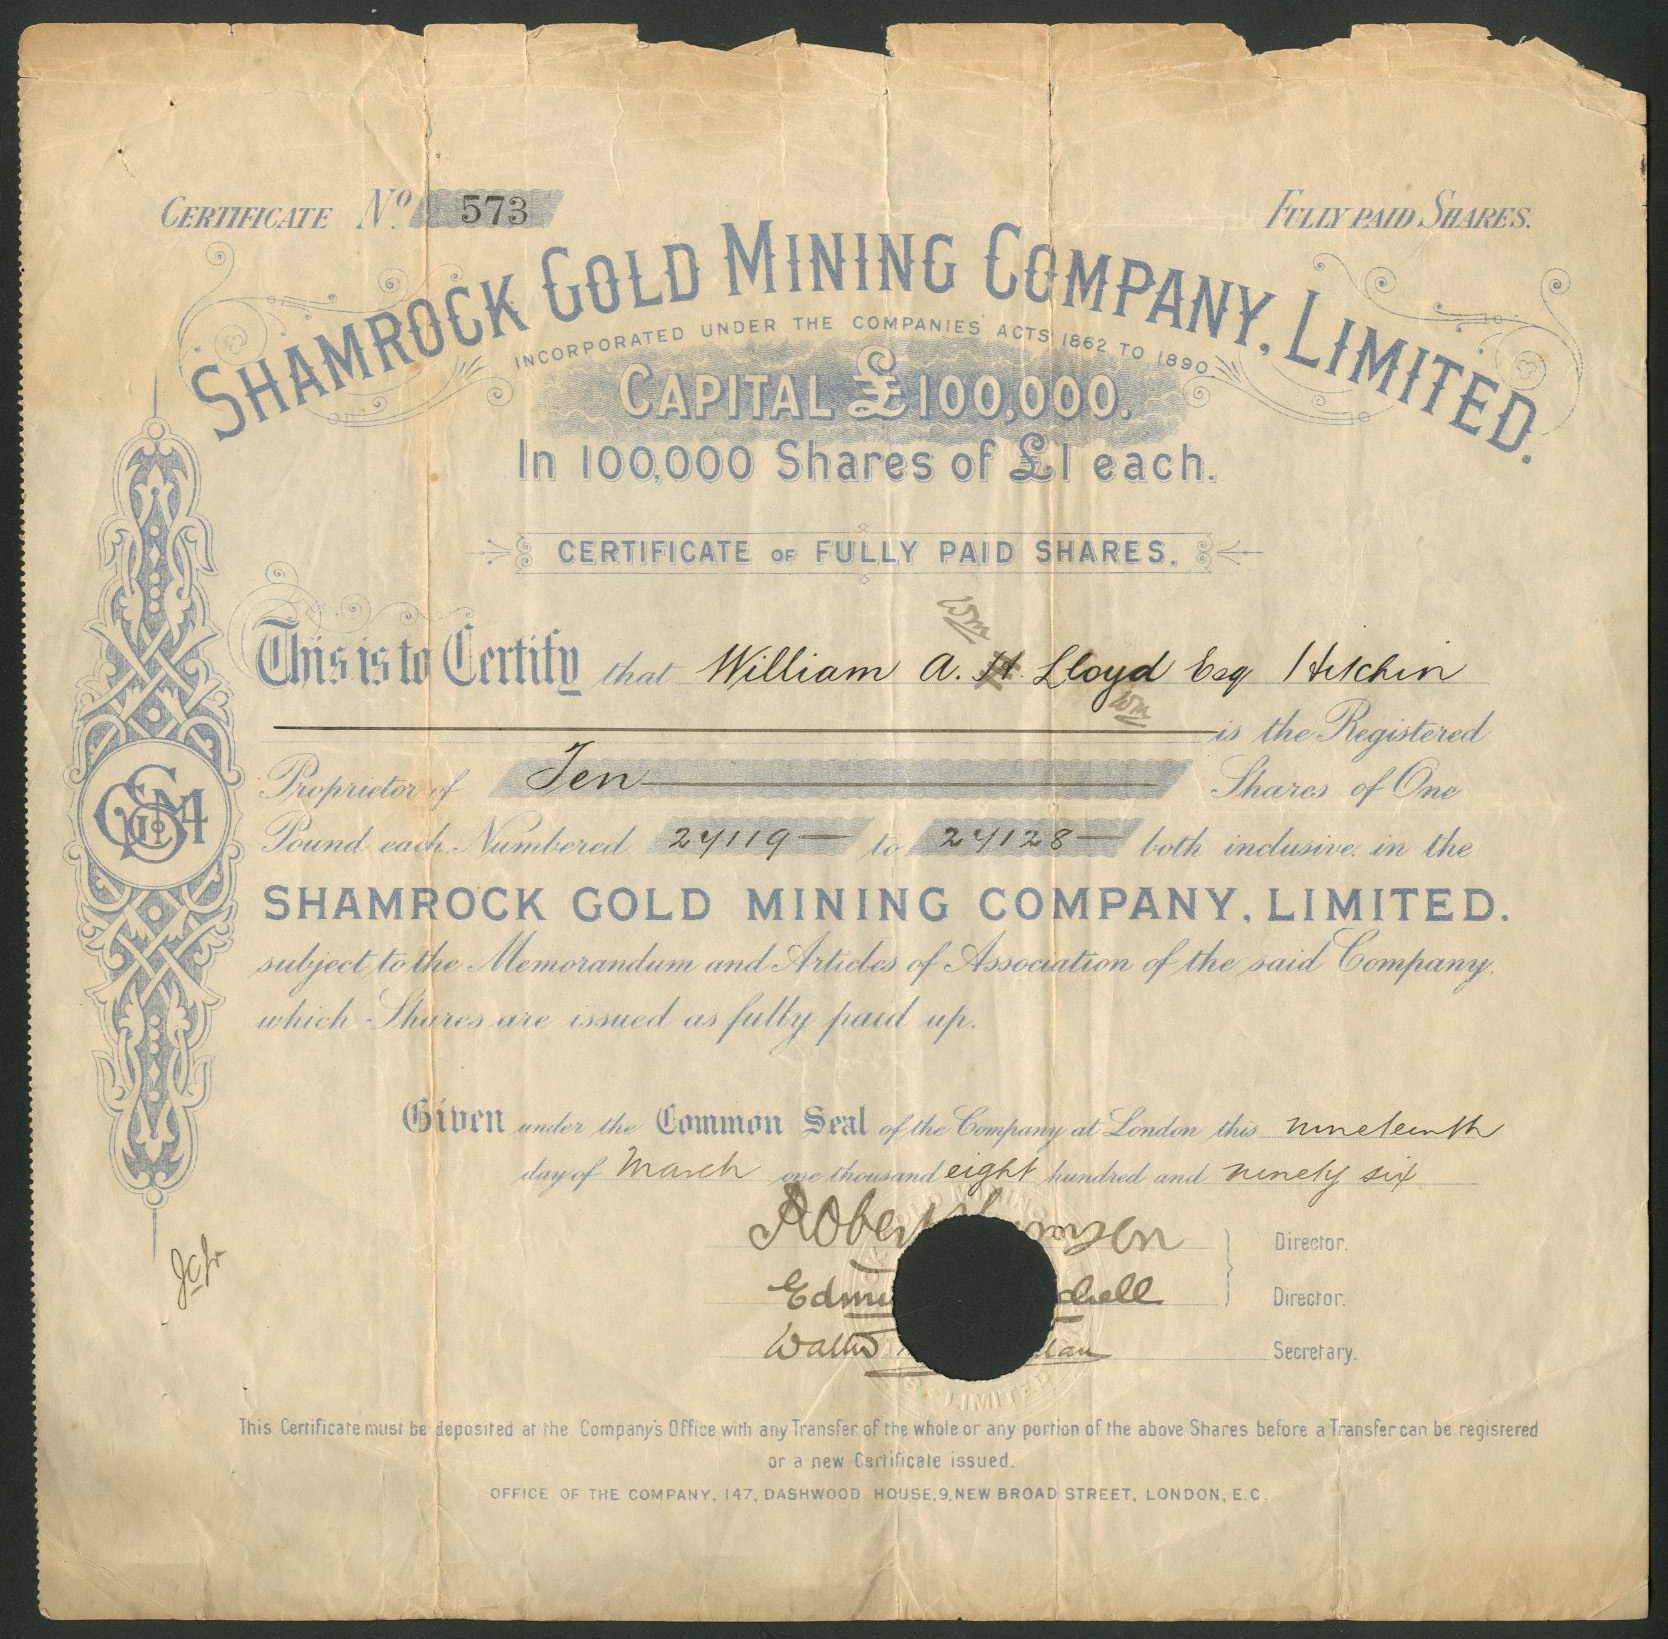 CERTIFICATE No. 573
FULLY PAID SHARES.
SHAMROCK GOLD MINING COMPANY, LIMITED.
INCORPORATED UNDER THE COMPANIES' ACTS 1862 TO 1890.
CAPITAL £100,000.
In 100,000 Shares of £1 each.
CERTIFICATE OF FULLY PAID SHARES.
This is to Certify that William A. H. Lloyd Esq Hitchin
is the Registered
Proprietor of Ten Shares of One
Pound each Numbered 24119 to 24128 both inclusive in the
SHAMROCK GOLD MINING COMPANY, LIMITED.
subject to the Memorandum and Articles of Association of the said Company,
which Shares are issued as fully paid up.
Given under the Common Seal of the Company at London this nineteenth
day of March one thousand eight hundred and ninety six
Robert Director.
Director.
Walter Secretary.
This Certificate must be deposited at the Company's Office with any Transfer of the whole or any portion of the above Shares before a Transfer can be registered
or a new Certificate issued.
OFFICE OF THE COMPANY, 147, DASHWOOD HOUSE, 9, NEW BROAD STREET, LONDON, E.C.